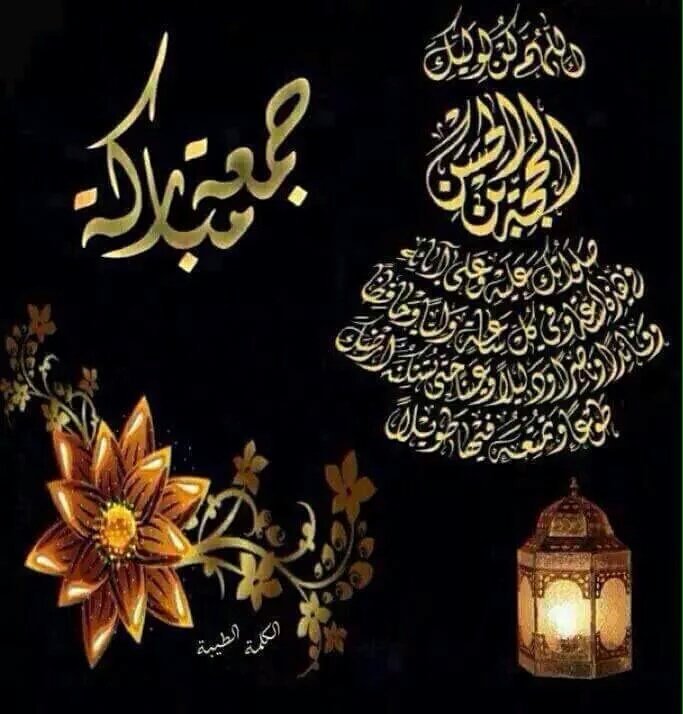 جمعة مباركة
اللهم كن لوليك
الحجة بن الحسن
صلواتك عليه وعلى آبائه
في هذه الساعة وفي كل ساعة وليا وحافظا
وقائدا وناصرا ودليلا وعينا حتى تسكنه أرضك
طوعا وتمتعه فيها طويلا
الكلمة الطيبة